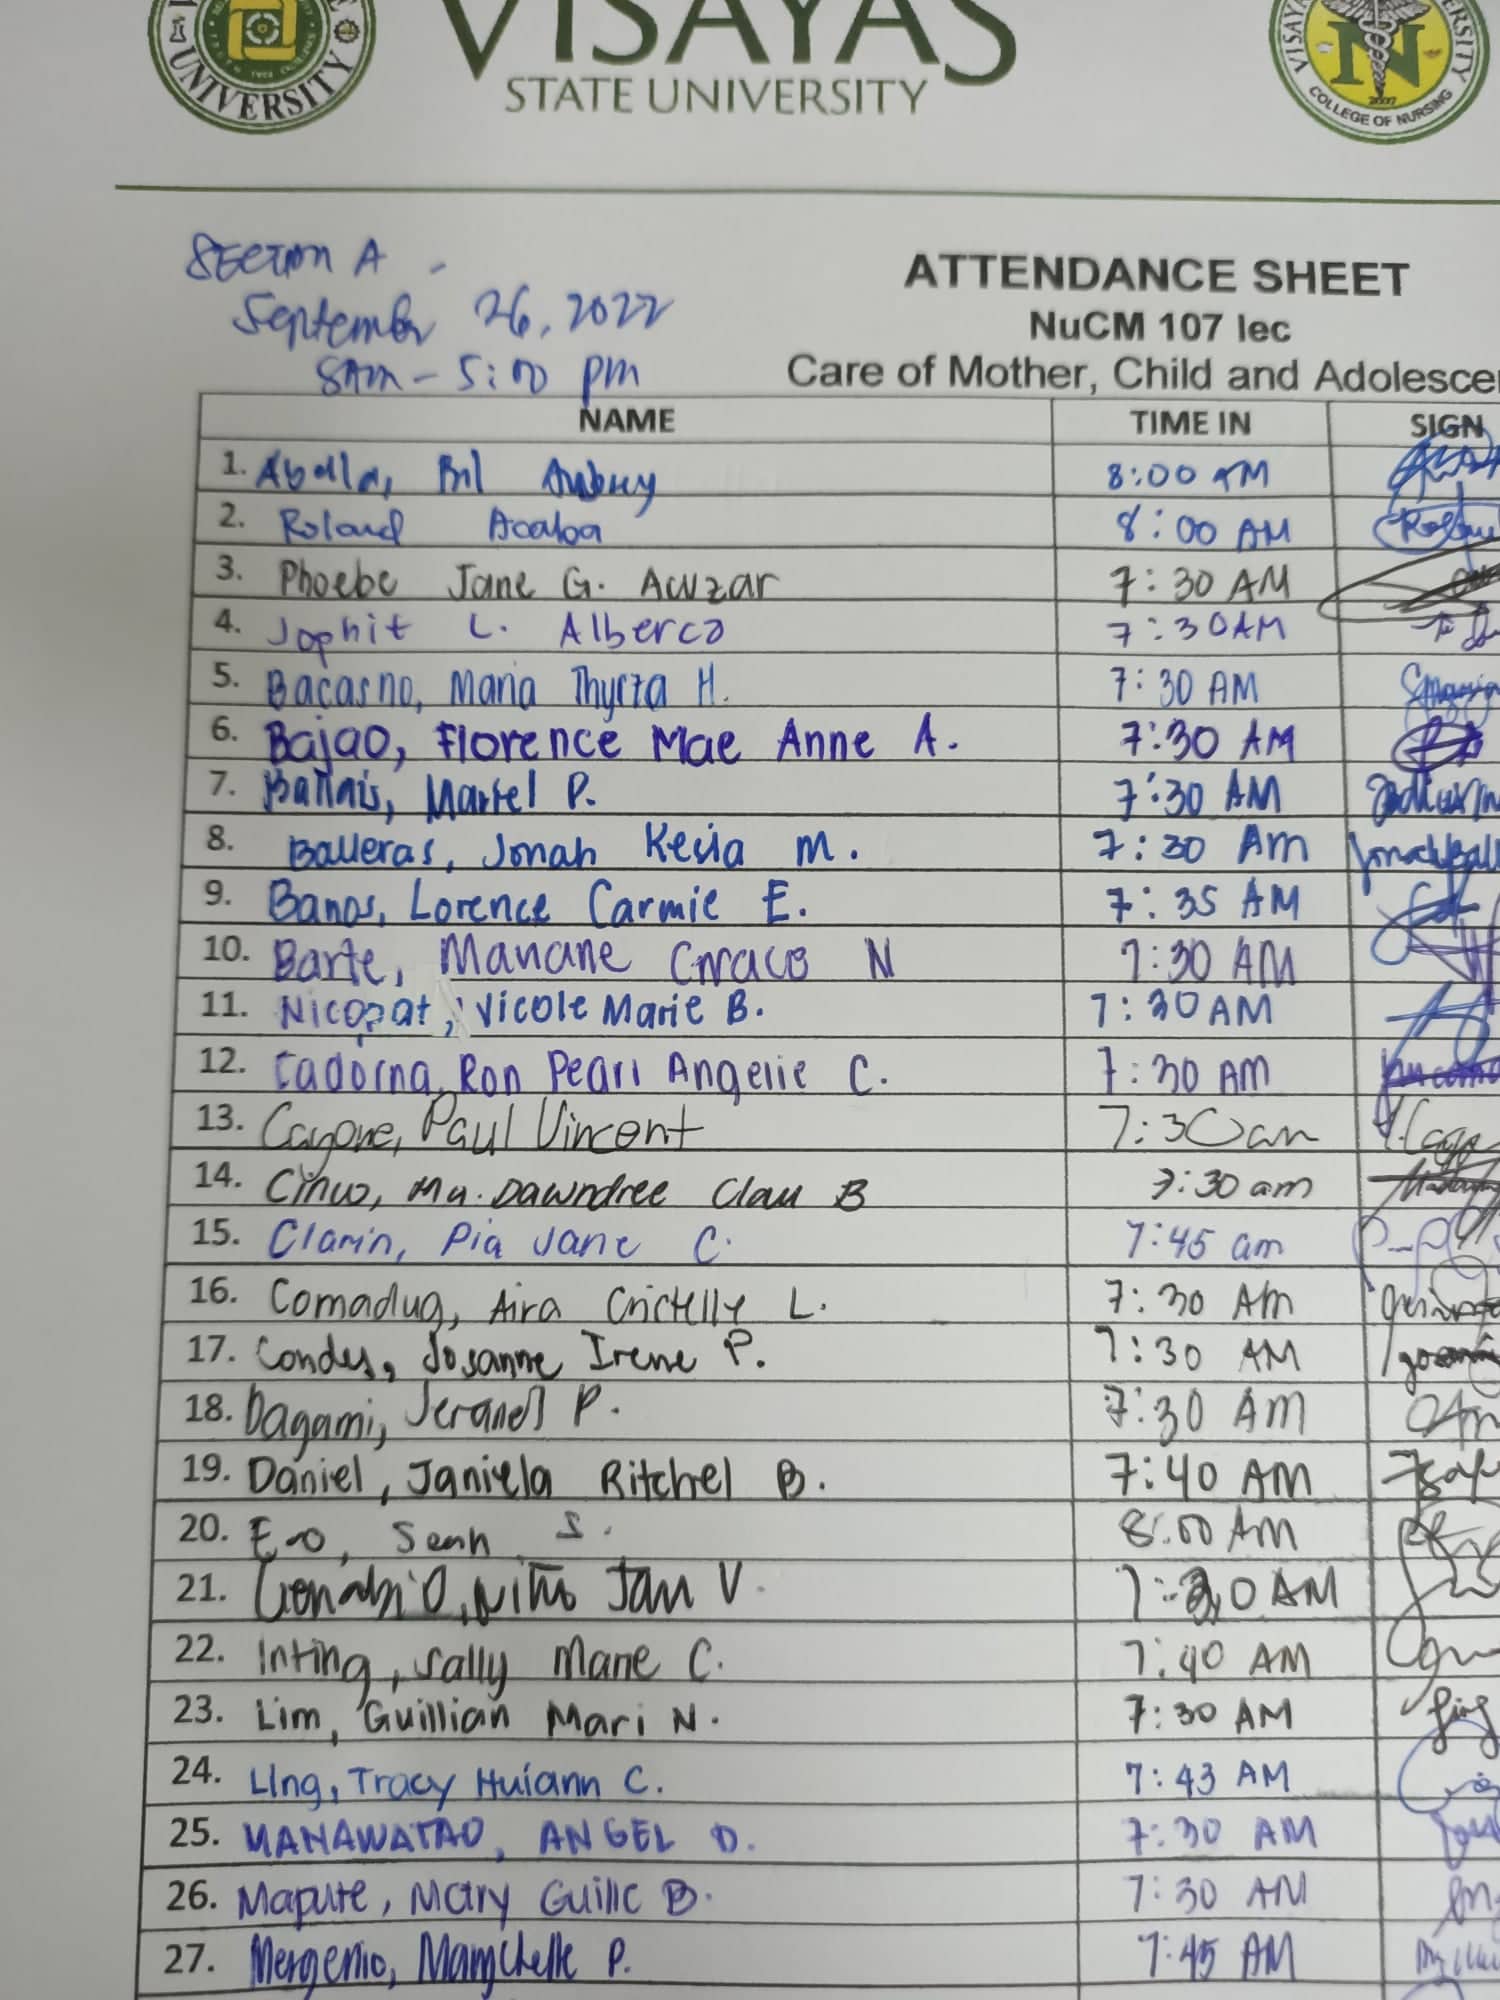 UNIVERSITY
VISAYAS
STATE UNIVERSITY
COLLEGE OF NURSING
2007
Section A -
September 26, 2022
8AM - 5:00 pm
ATTENDANCE SHEET
NuCM 107 lec
Care of Mother, Child and Adolesce
NAME TIME IN SIGN
1. Abella, Aubrey 8:00 AM
2. Roland Acaba 8:00 AM
3. Phoebe Jane G. Acuzar 7:30 AM
4. Jophit L. Alberca 7:30AM
5. Bacasno, Maria Thyrza H. 7:30 AM
6. Bajao, Florence Mae Anne A. 7:30 AM
7. Martel P. 7:30 AM
8. Balleras, Jonah Kesia M. 7:30 Am
9. Banos, Lorence Carmie E. 7:35 AM
10. Barte, N 7:30 AM
11. Marie B. 7:30 AM
12. Cadorna, Ron Pearl Angelie C. 7:30 AM
13. Cayone, Paul Vincent 7:30am
14. Ma. Dawndree B 7:30 am
15. Clarin, Pia Jane C. 7:45 am
16. Comadug, Aira Crictelly L. 7:30 AM
17. Condes, Josanne Irene P. 7:30 AM
18. Dagami, P. 7:30 AM
19. Daniel, Janiela Ritchel B. 7:40 AM
20. S. 8:00 AM
21. Niño Jan V. 7:30 AM
22. Inting, Sally Marie C. 7:40 AM
23. Lim, Guillian Mari N. 7:30 AM
24. Ling, Tracy Huiann C. 7:43 AM
25. MANAWATAO, ANGEL D. 7:30 AM
26. Mapute, Mary Guille B. 7:30 AM
27. Mergenio, Marychelle P. 7:45 AM